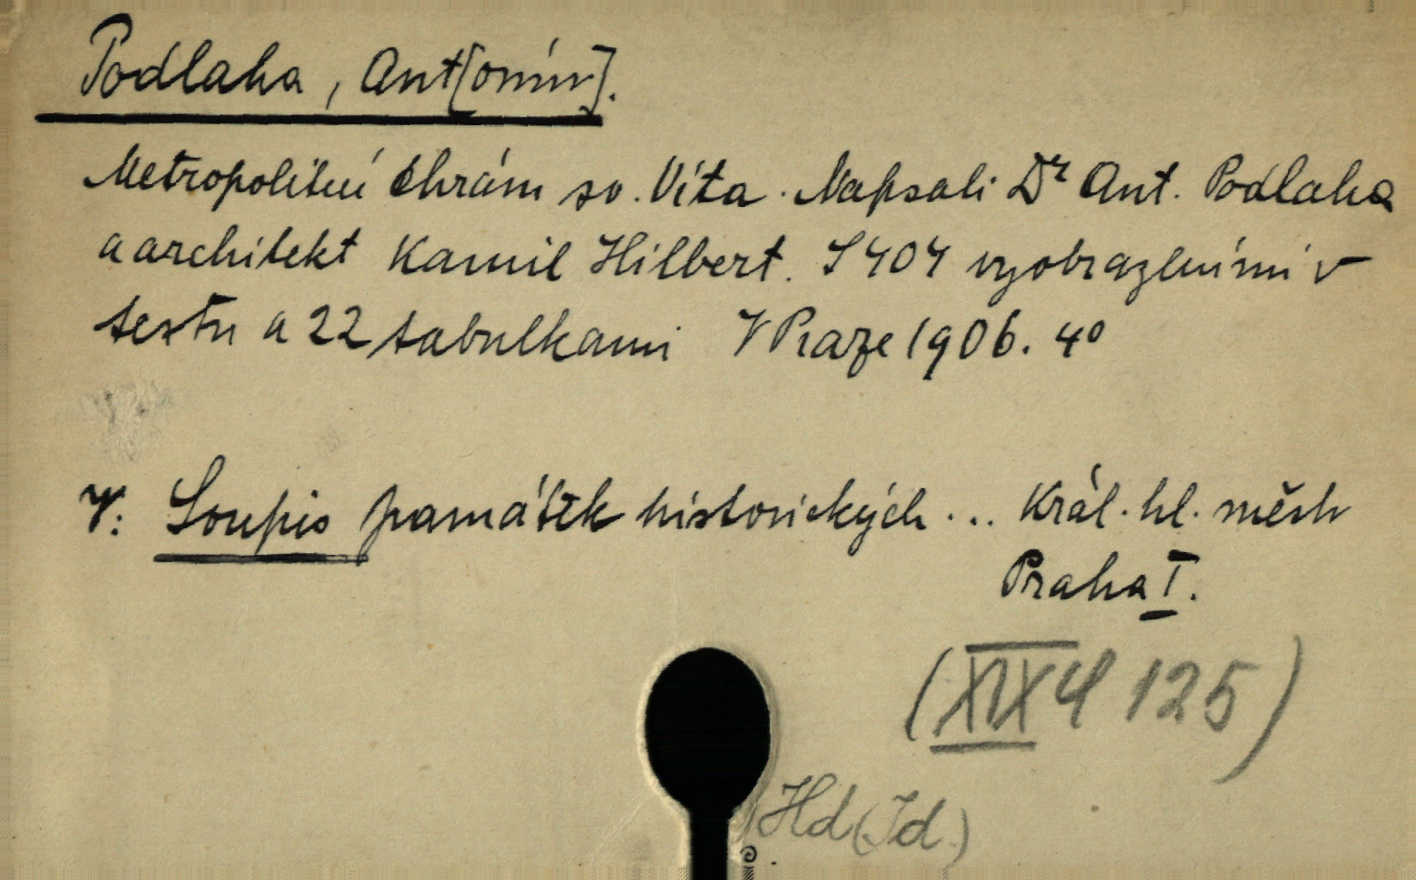 Podlaha, Ant[onín].
Metropolitní chrám sv. Víta. Napsali Dr Ant. Podlaha
a architekt Kamil Hilbert. S 404 vyobrazeními v
textu a 22 tabulkami V Praze 1906. 4°
V: Soupis památek historických... Král. hl. město
Praha I.
(XIX 4 125)
Hd (Id.)